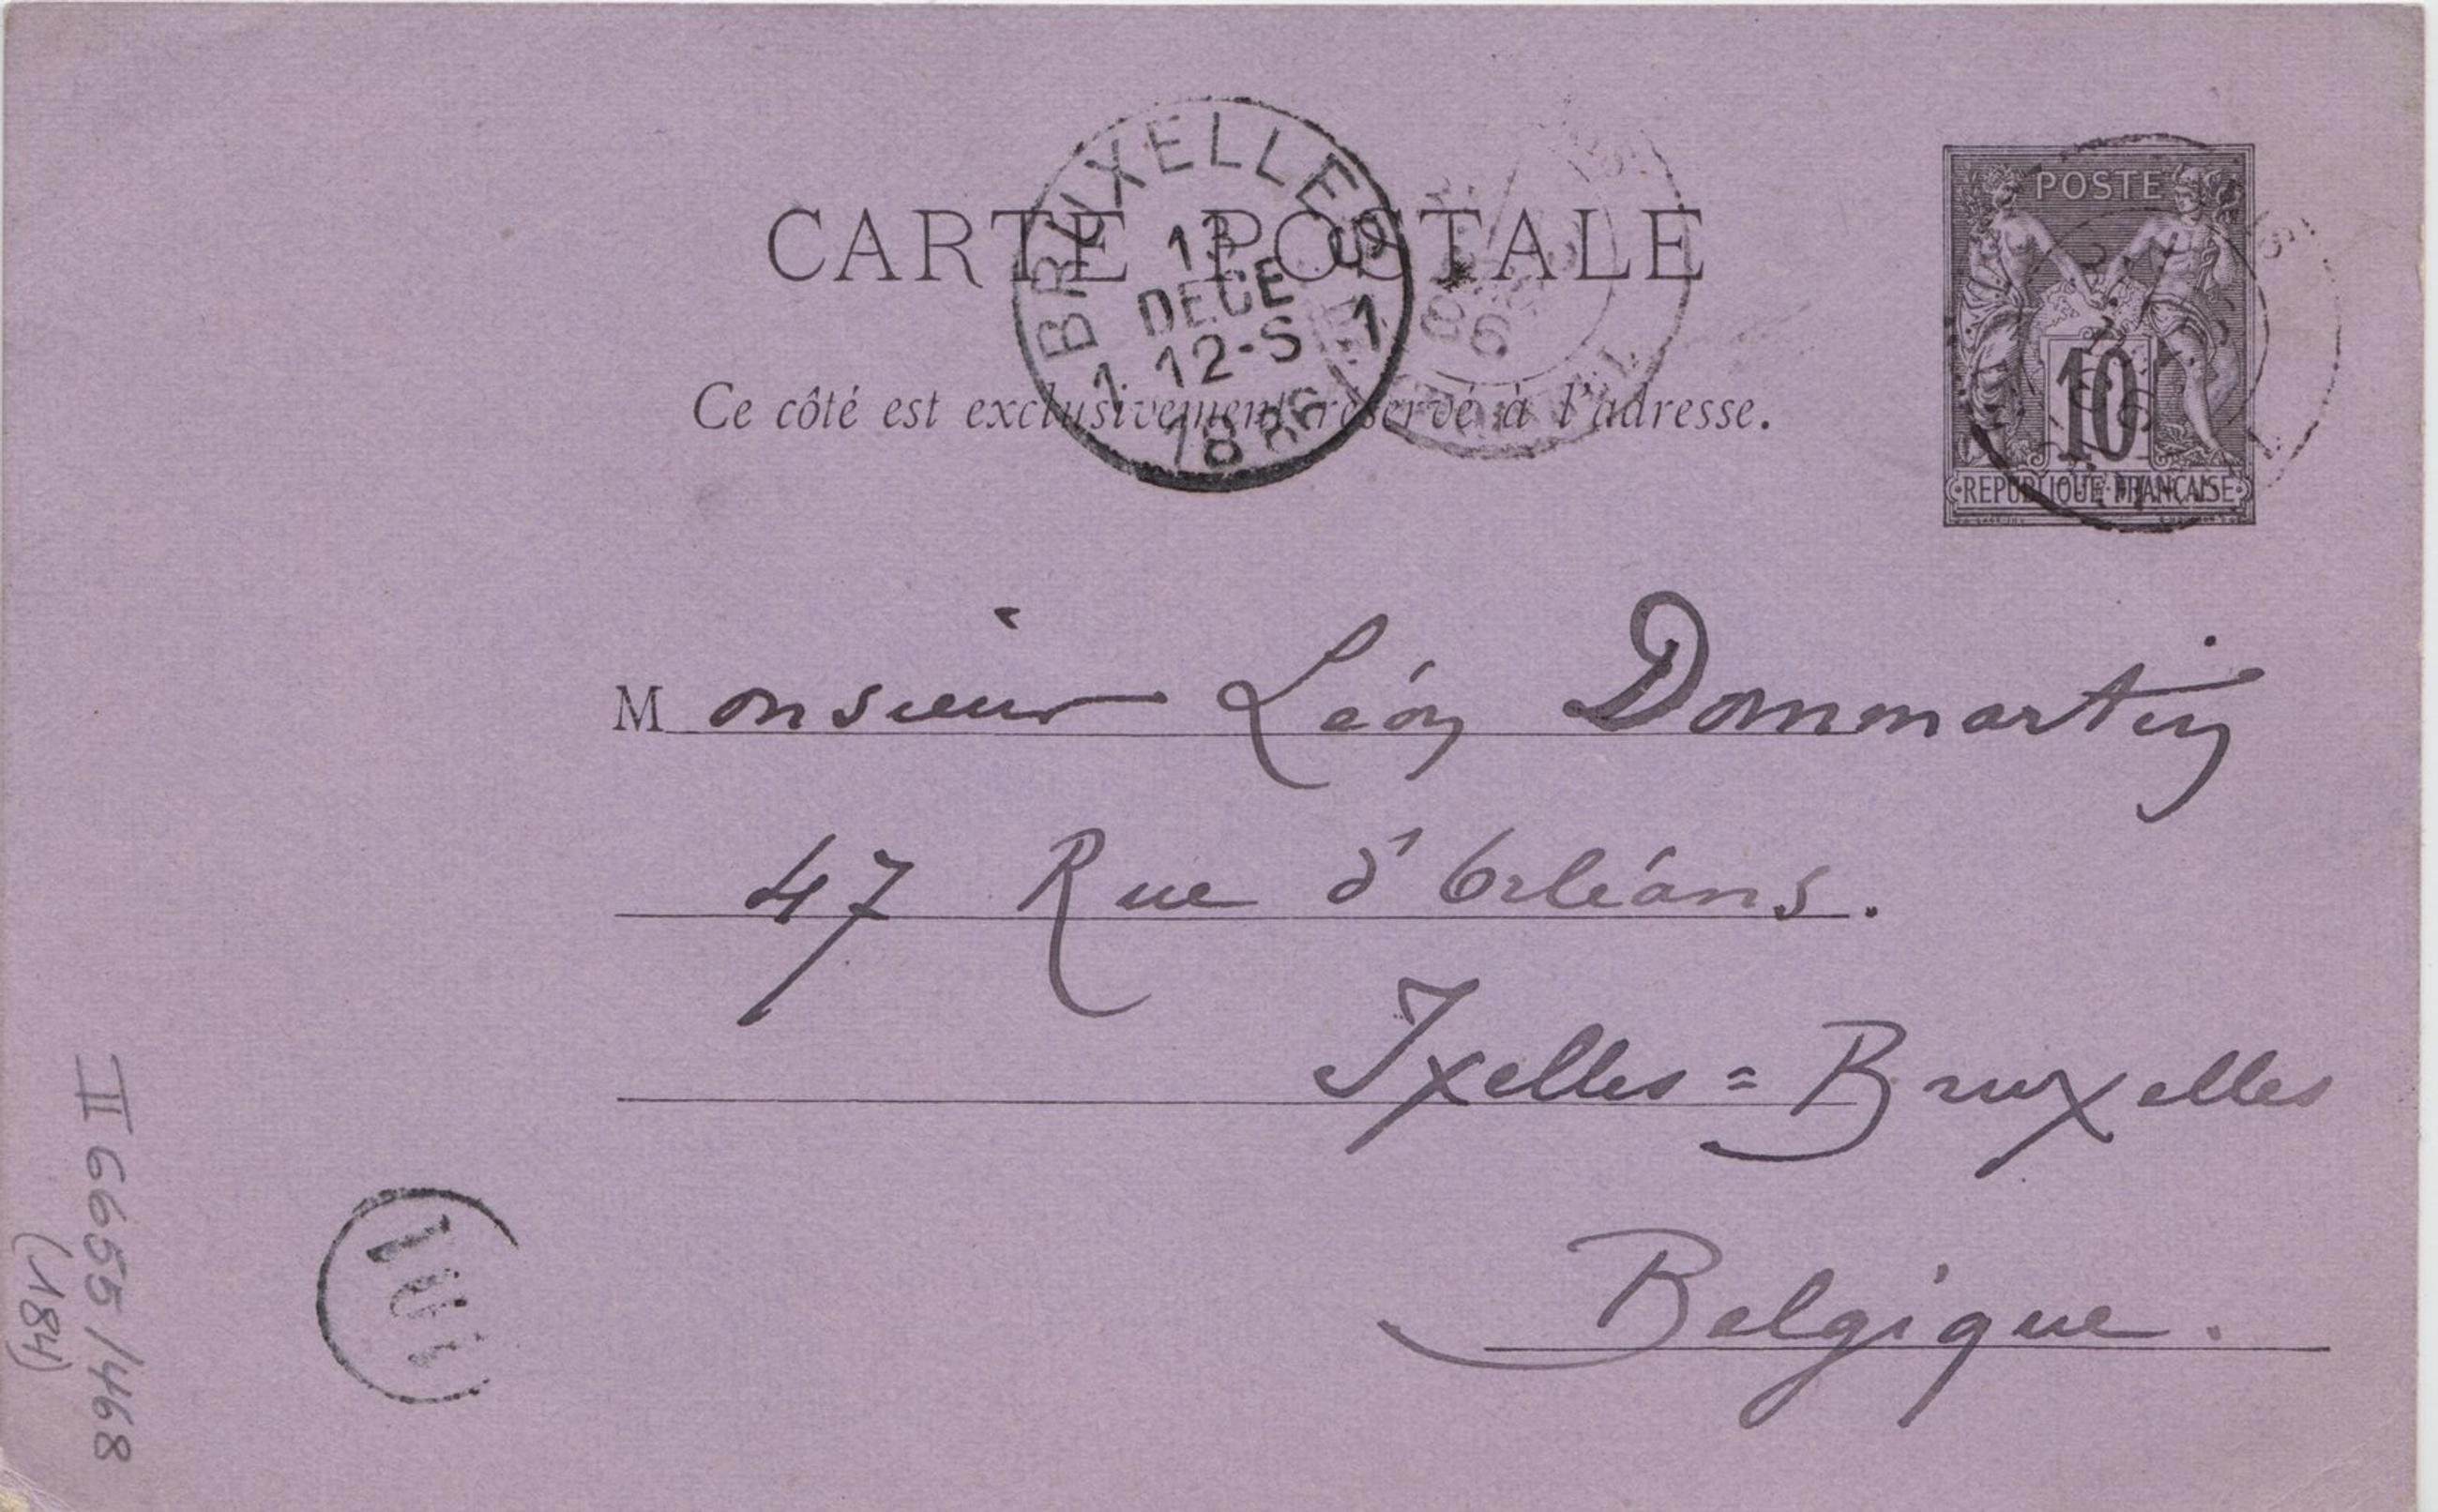 CARTE POSTALE
BRUXELLES
13
DECE
1 12-S 1
1886
86
POSTE
10
REPUBLIQUE FRANÇAISE
Ce côté est exclusivement réservé à l'adresse.
Monsieur Léon Dommartin
47 Rue d'Orléans.
Ixelles = Bruxelles
Belgique.
II 6655/468
(184)